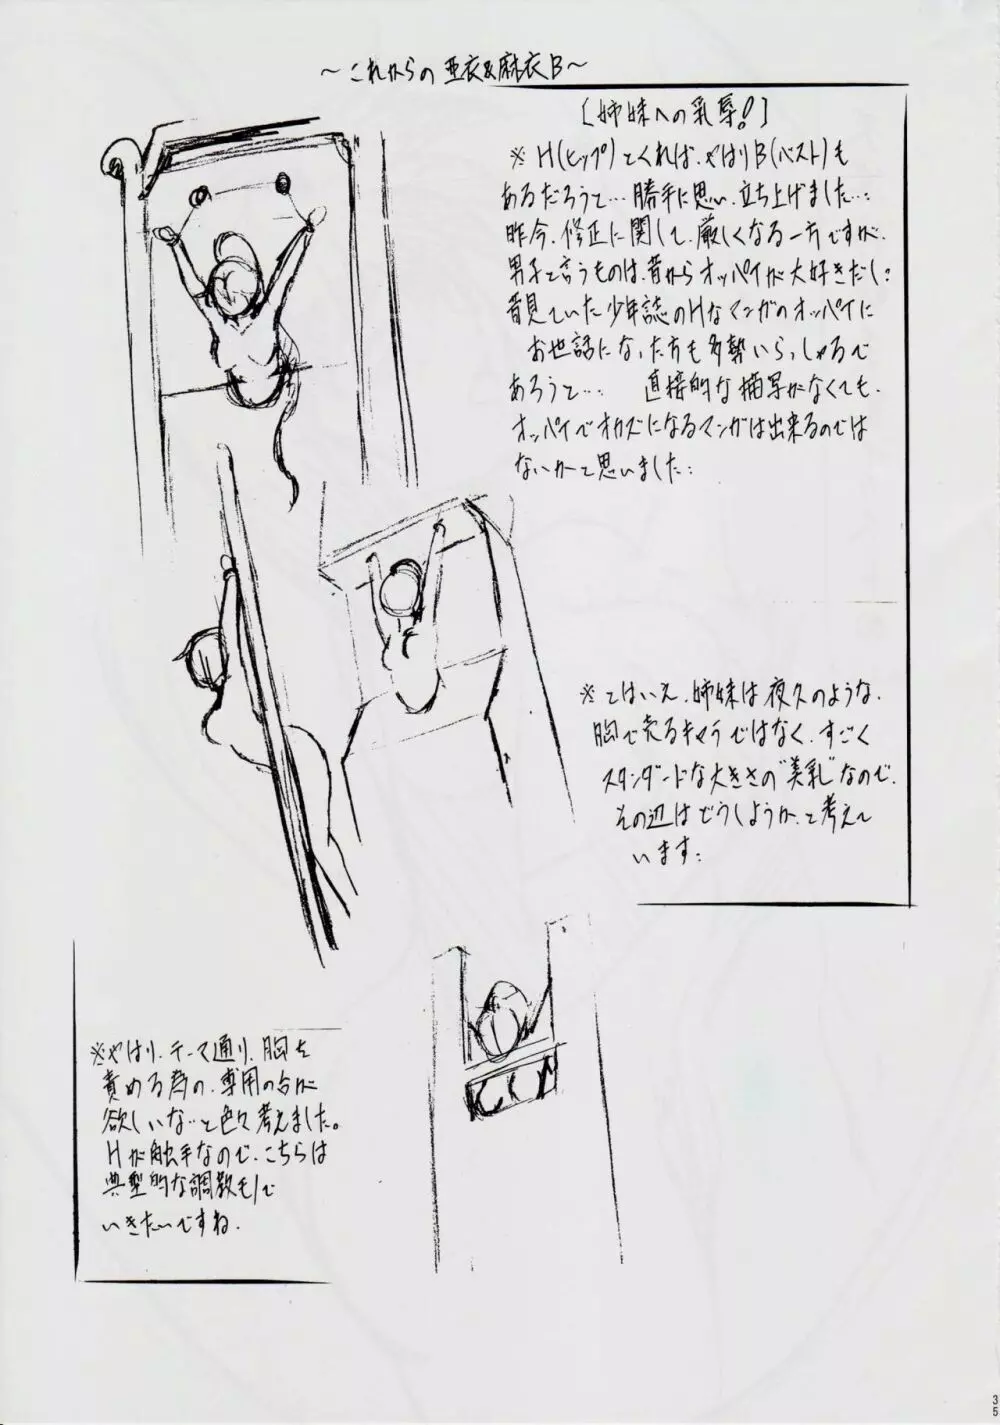 ～これからの亜衣&麻衣B～
[姉妹への乳辱!]
※H(ヒップ)とくれば、やはりB(バスト)も
あるだろうと…勝手に思い、立ち上げました…
昨今、修正に関して、厳しくなる一方ですが、
男子と言うものは、昔からオッパイが大好きだし…
昔見ていた少年誌のHなマンガのオッパイに
お世話になった方も多勢いらっしゃるで
あろうと… 直接的な描写がなくても、
オッパイでオカズになるマンガは出来るのでは
ないかと思いました…
※とはいえ、姉妹は夜久のような、
胸で売るキャラではなく、すごく
スタンダードな大きさの"美乳"なので、
その辺はどうしようか、と考えて
います…
※やはり、テーマ通り、胸を
責める為の、専用の台が
欲しいな…と色々考えました。
Hが触手なので、こちらは
典型的な調教モノで
いきたいですね。
35